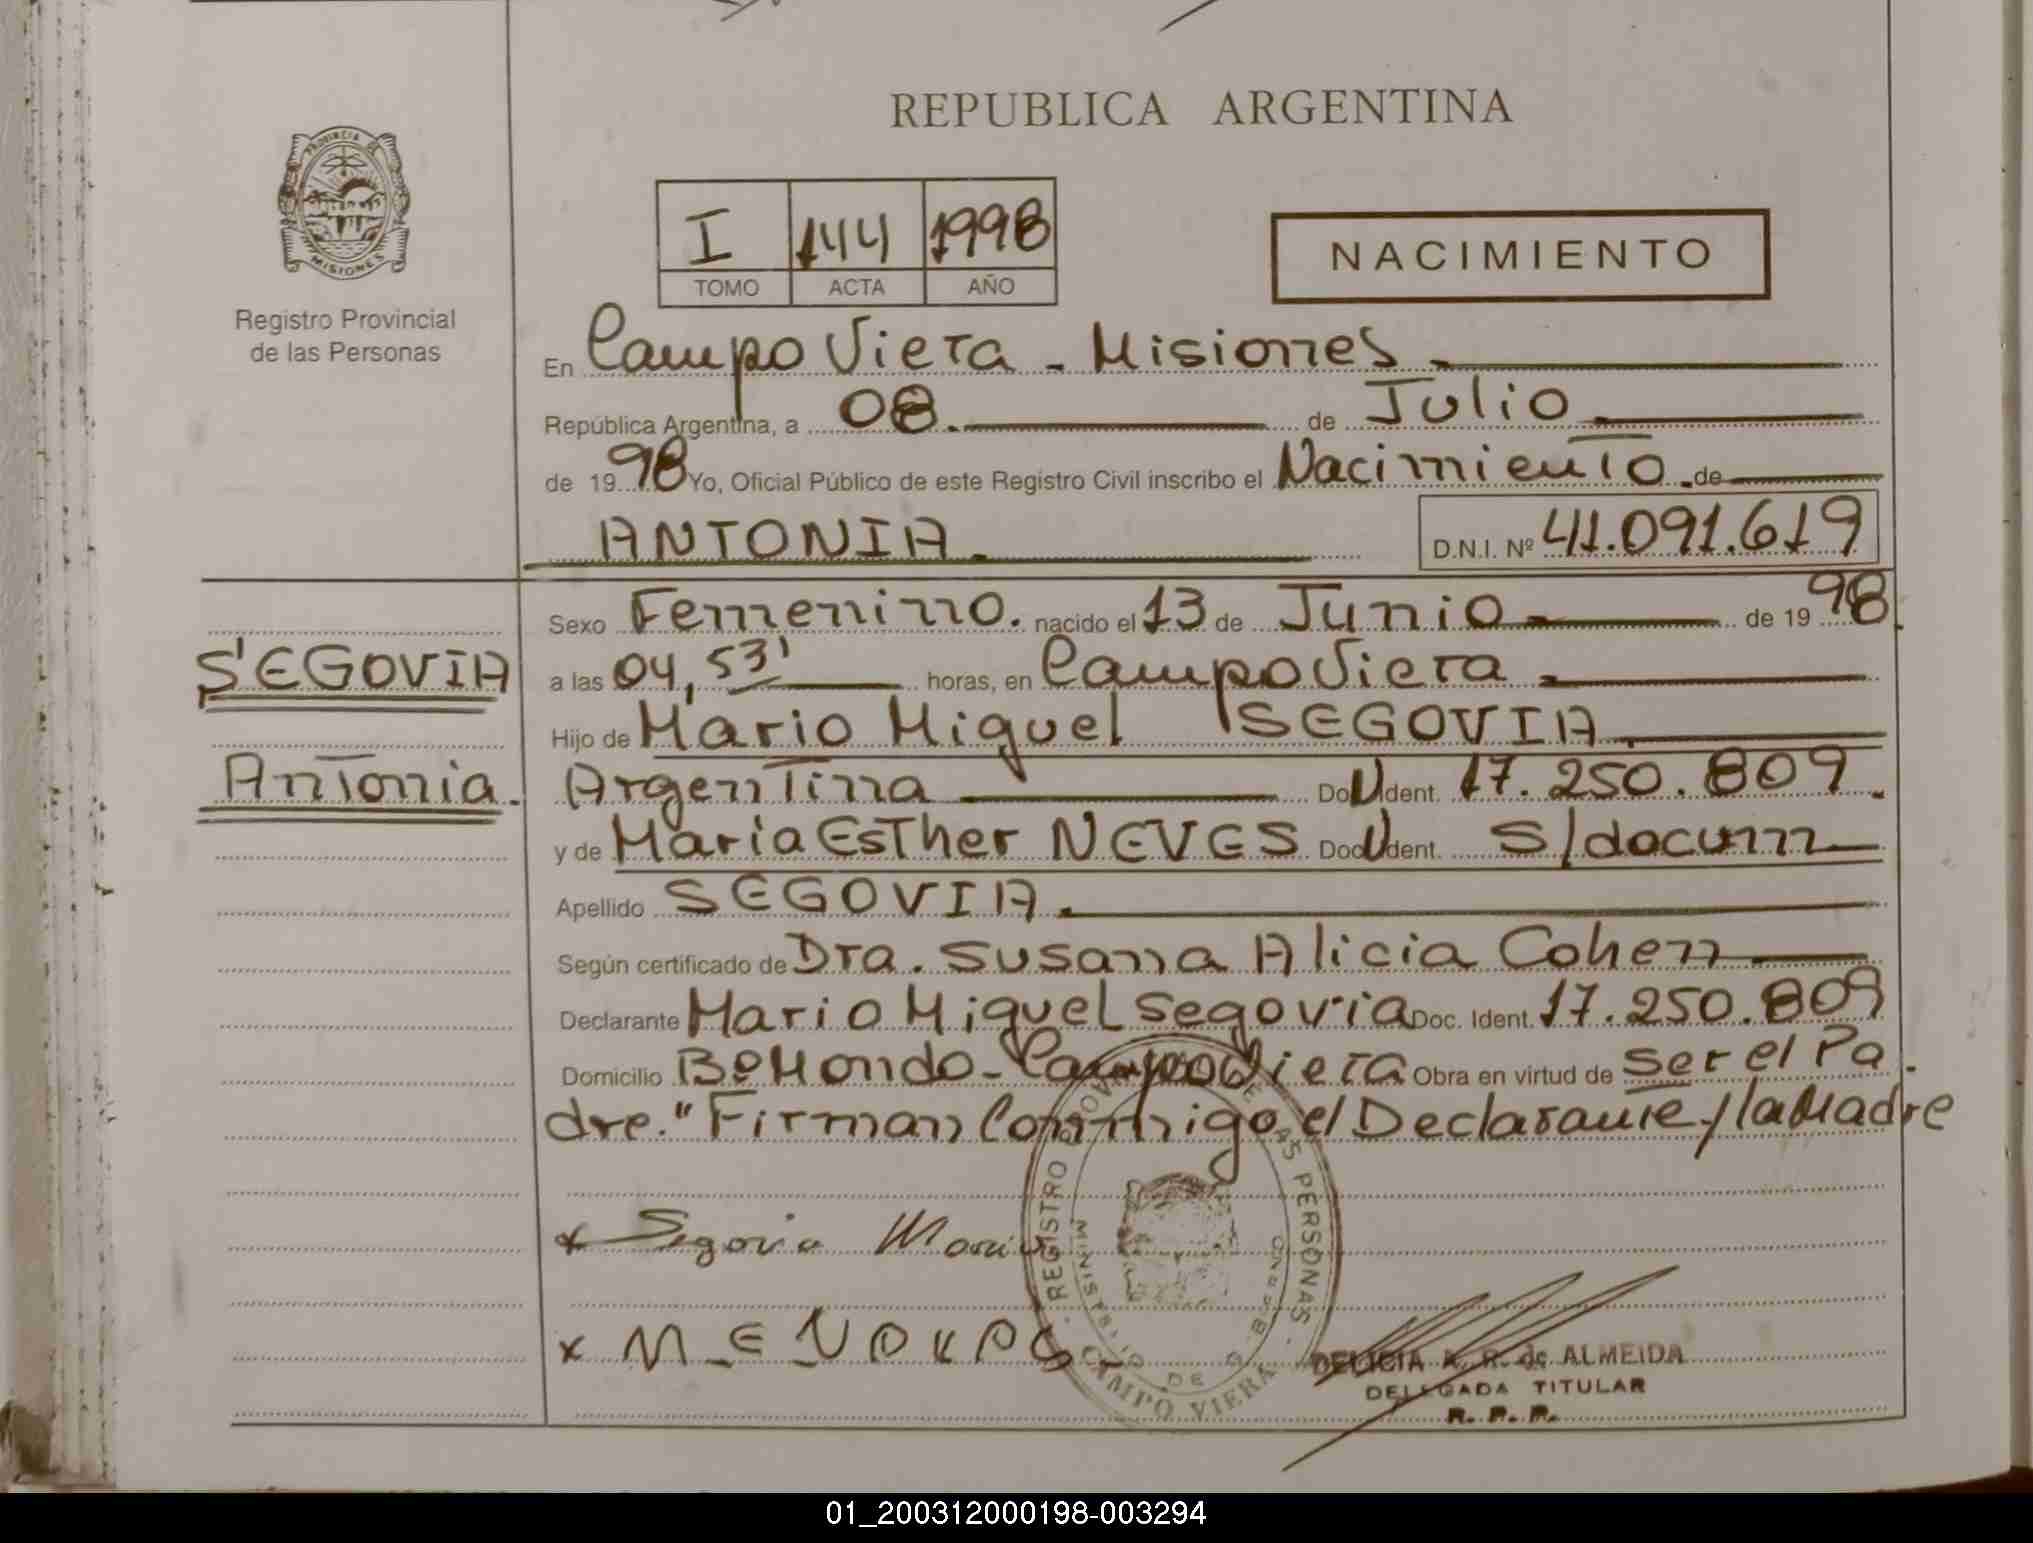 REPUBLICA ARGENTINA
PROVINCIA DE
MISIONES
Registro Provincial
de las Personas
I 144 1998
TOMO ACTA AÑO
NACIMIENTO
En Campo Viera - Misiones.
República Argentina, a 08. de Julio.
de 1998 Yo, Oficial Público de este Registro Civil inscribo el Nacimiento. de
ANTONIA. D.N.I. Nº 41.091.619
Sexo Femenino. nacido el 13 de Junio. de 1998.
SEGOVIA
a las 04,53' horas, en Campo Viera.
Hijo de Mario Miguel SEGOVIA.
Antonia.
Argentina Doc. Ident. 17.250.809.
y de Maria Esther NEVES Doc. Ident. S/docum
Apellido SEGOVIA.
Según certificado de Dra. Susana Alicia Cohen
Declarante Mario Miguel Segovia Doc. Ident. 17.250.809
Domicilio Bº Mondo - Campo Viera Obra en virtud de ser el Pa
dre." Firman Conmigo el Declarante y la Madre
x Segovia Mario
x
REGISTRO PERSONAS
MINISTERIO DE
CAMPO VIERA
DELICIA A. R. de ALMEIDA
DELEGADA TITULAR
R. P. P.
01_200312000198-003294